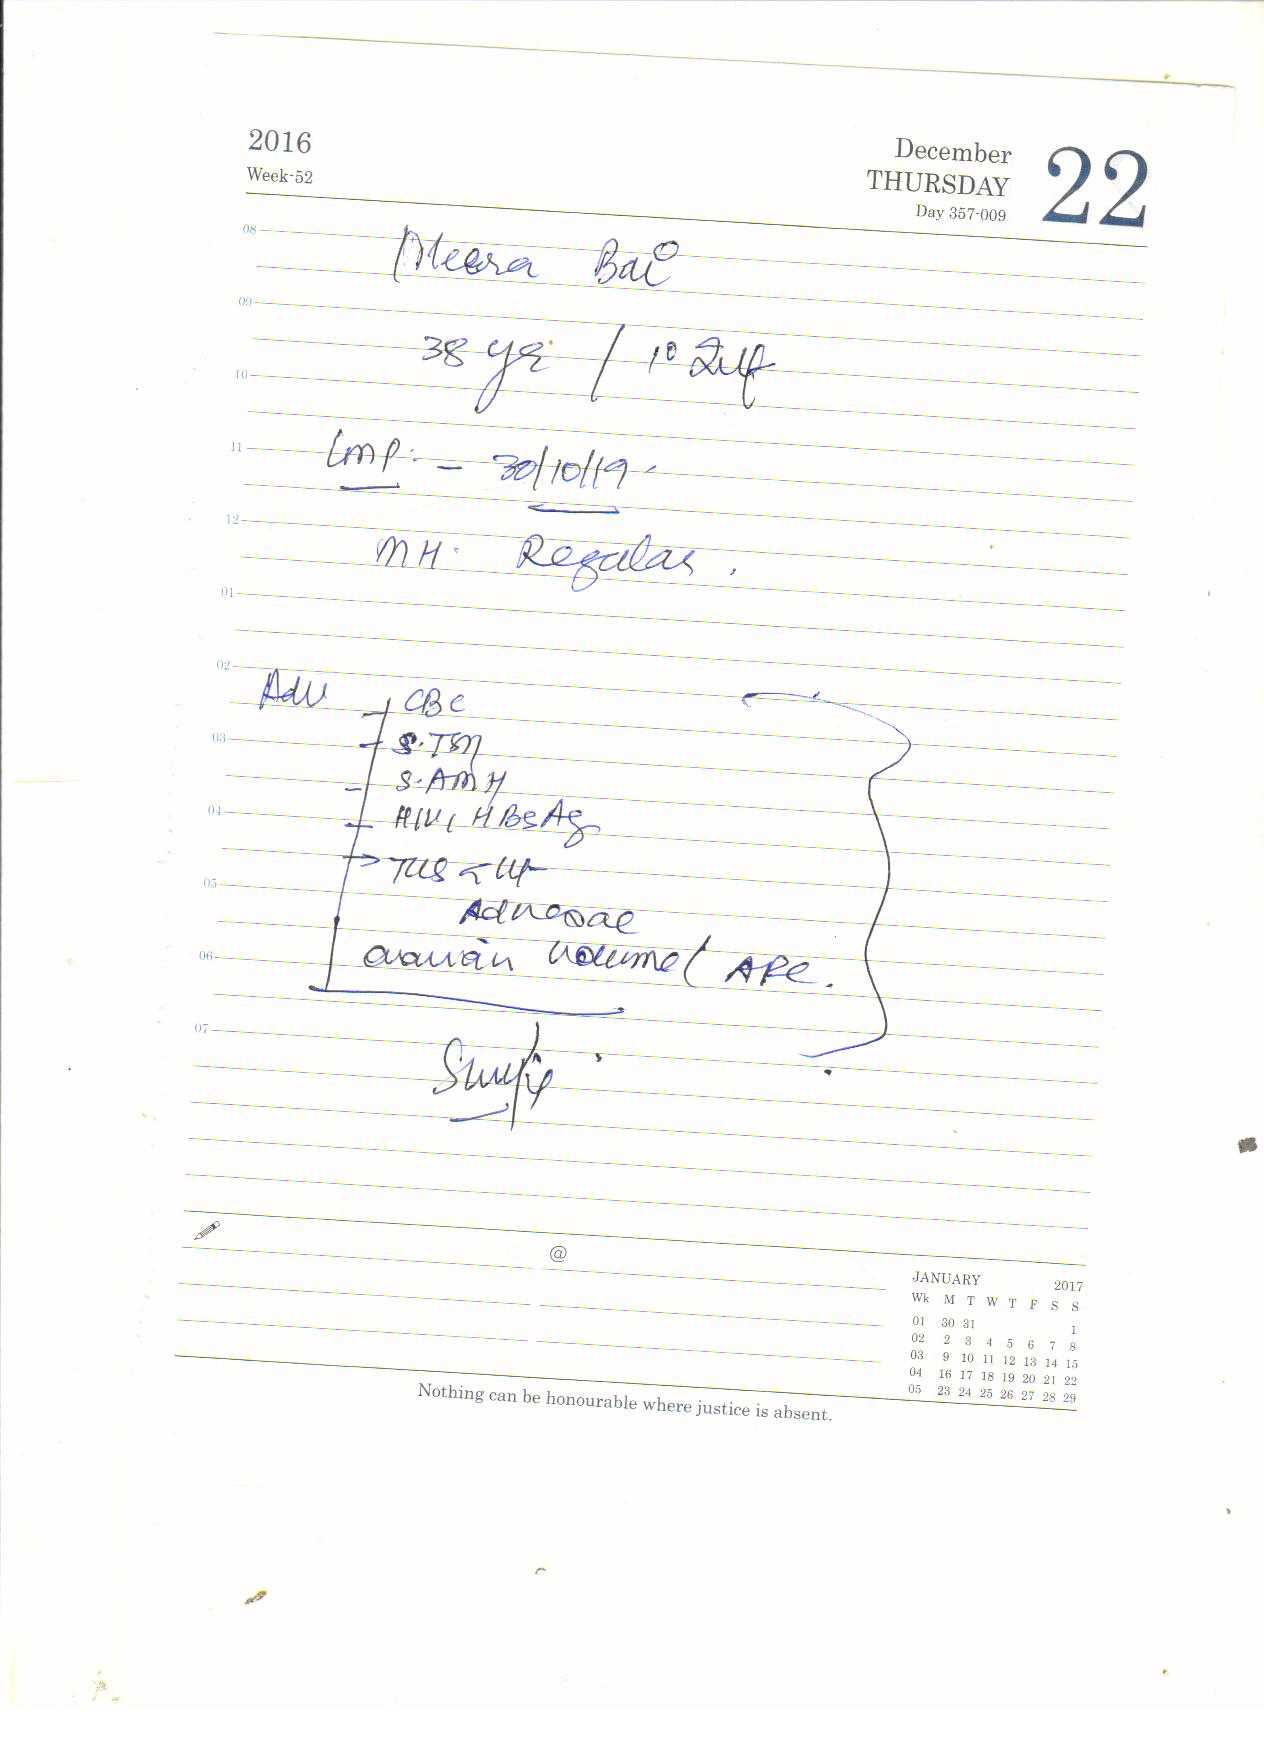 2016
Week-52
December
THURSDAY
Day 357-009
22
08
Meera Bai
09
38 yr / 1° Inf
10
11
LMP: – 30/10/19
12
MH: Regular.
01
02
Adv CBC
03
S.TSH
S.AMH
04
HIV, HBsAg
TVS
05
Adnexae
06
ovarian volume / AFC.
07
@
JANUARY 2017
Wk M T W T F S S
01 30 31 1
02 2 3 4 5 6 7 8
03 9 10 11 12 13 14 15
04 16 17 18 19 20 21 22
05 23 24 25 26 27 28 29
Nothing can be honourable where justice is absent.